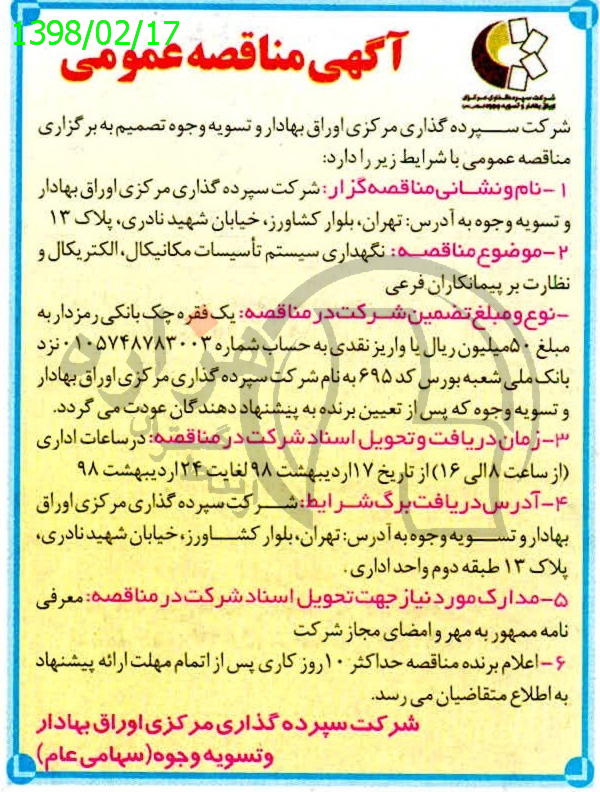 1398/02/17
آگهی مناقصه عمومی
شرکت سپرده گذاری مرکزی
اوراق بهادار و تسویه وجوه
شرکت سپرده گذاری مرکزی اوراق بهادار و تسویه وجوه تصمیم به برگزاری
مناقصه عمومی با شرایط زیر را دارد:
۱-نام و نشانی مناقصه گزار: شرکت سپرده گذاری مرکزی اوراق بهادار
و تسویه وجوه به آدرس: تهران، بلوار کشاورز، خیابان شهید نادری، پلاک ۱۳
۲-موضوع مناقصه: نگهداری سیستم تأسیسات مکانیکال، الکتریکال و
نظارت بر پیمانکاران فرعی
-نوع و مبلغ تضمین شرکت در مناقصه: یک فقره چک بانکی رمزدار به
مبلغ ۵۰ میلیون ریال یا واریز نقدی به حساب شماره ۰۱۰۵۷۴۸۷۸۳۰۰۳ نزد
بانک ملی شعبه بورس کد ۶۹۵ به نام شرکت سپرده گذاری مرکزی اوراق بهادار
و تسویه وجوه که پس از تعیین برنده به پیشنهاد دهندگان عودت می گردد.
۳-زمان دریافت و تحویل اسناد شرکت در مناقصه: در ساعات اداری
(از ساعت ۸ الی ۱۶) از تاریخ ۱۷ اردیبهشت ۹۸ لغایت ۲۴ اردیبهشت ۹۸
۴-آدرس دریافت برگ شرایط: شرکت سپرده گذاری مرکزی اوراق
بهادار و تسویه وجوه به آدرس: تهران، بلوار کشاورز، خیابان شهید نادری،
پلاک ۱۳ طبقه دوم واحد اداری.
۵-مدارک مورد نیاز جهت تحویل اسناد شرکت در مناقصه: معرفی
نامه ممهور به مهر و امضای مجاز شرکت
۶-اعلام برنده مناقصه حداکثر ۱۰ روز کاری پس از اتمام مهلت ارائه پیشنهاد
به اطلاع متقاضیان می رسد.
شرکت سپرده گذاری مرکزی اوراق بهادار
و تسویه وجوه (سهامی عام)